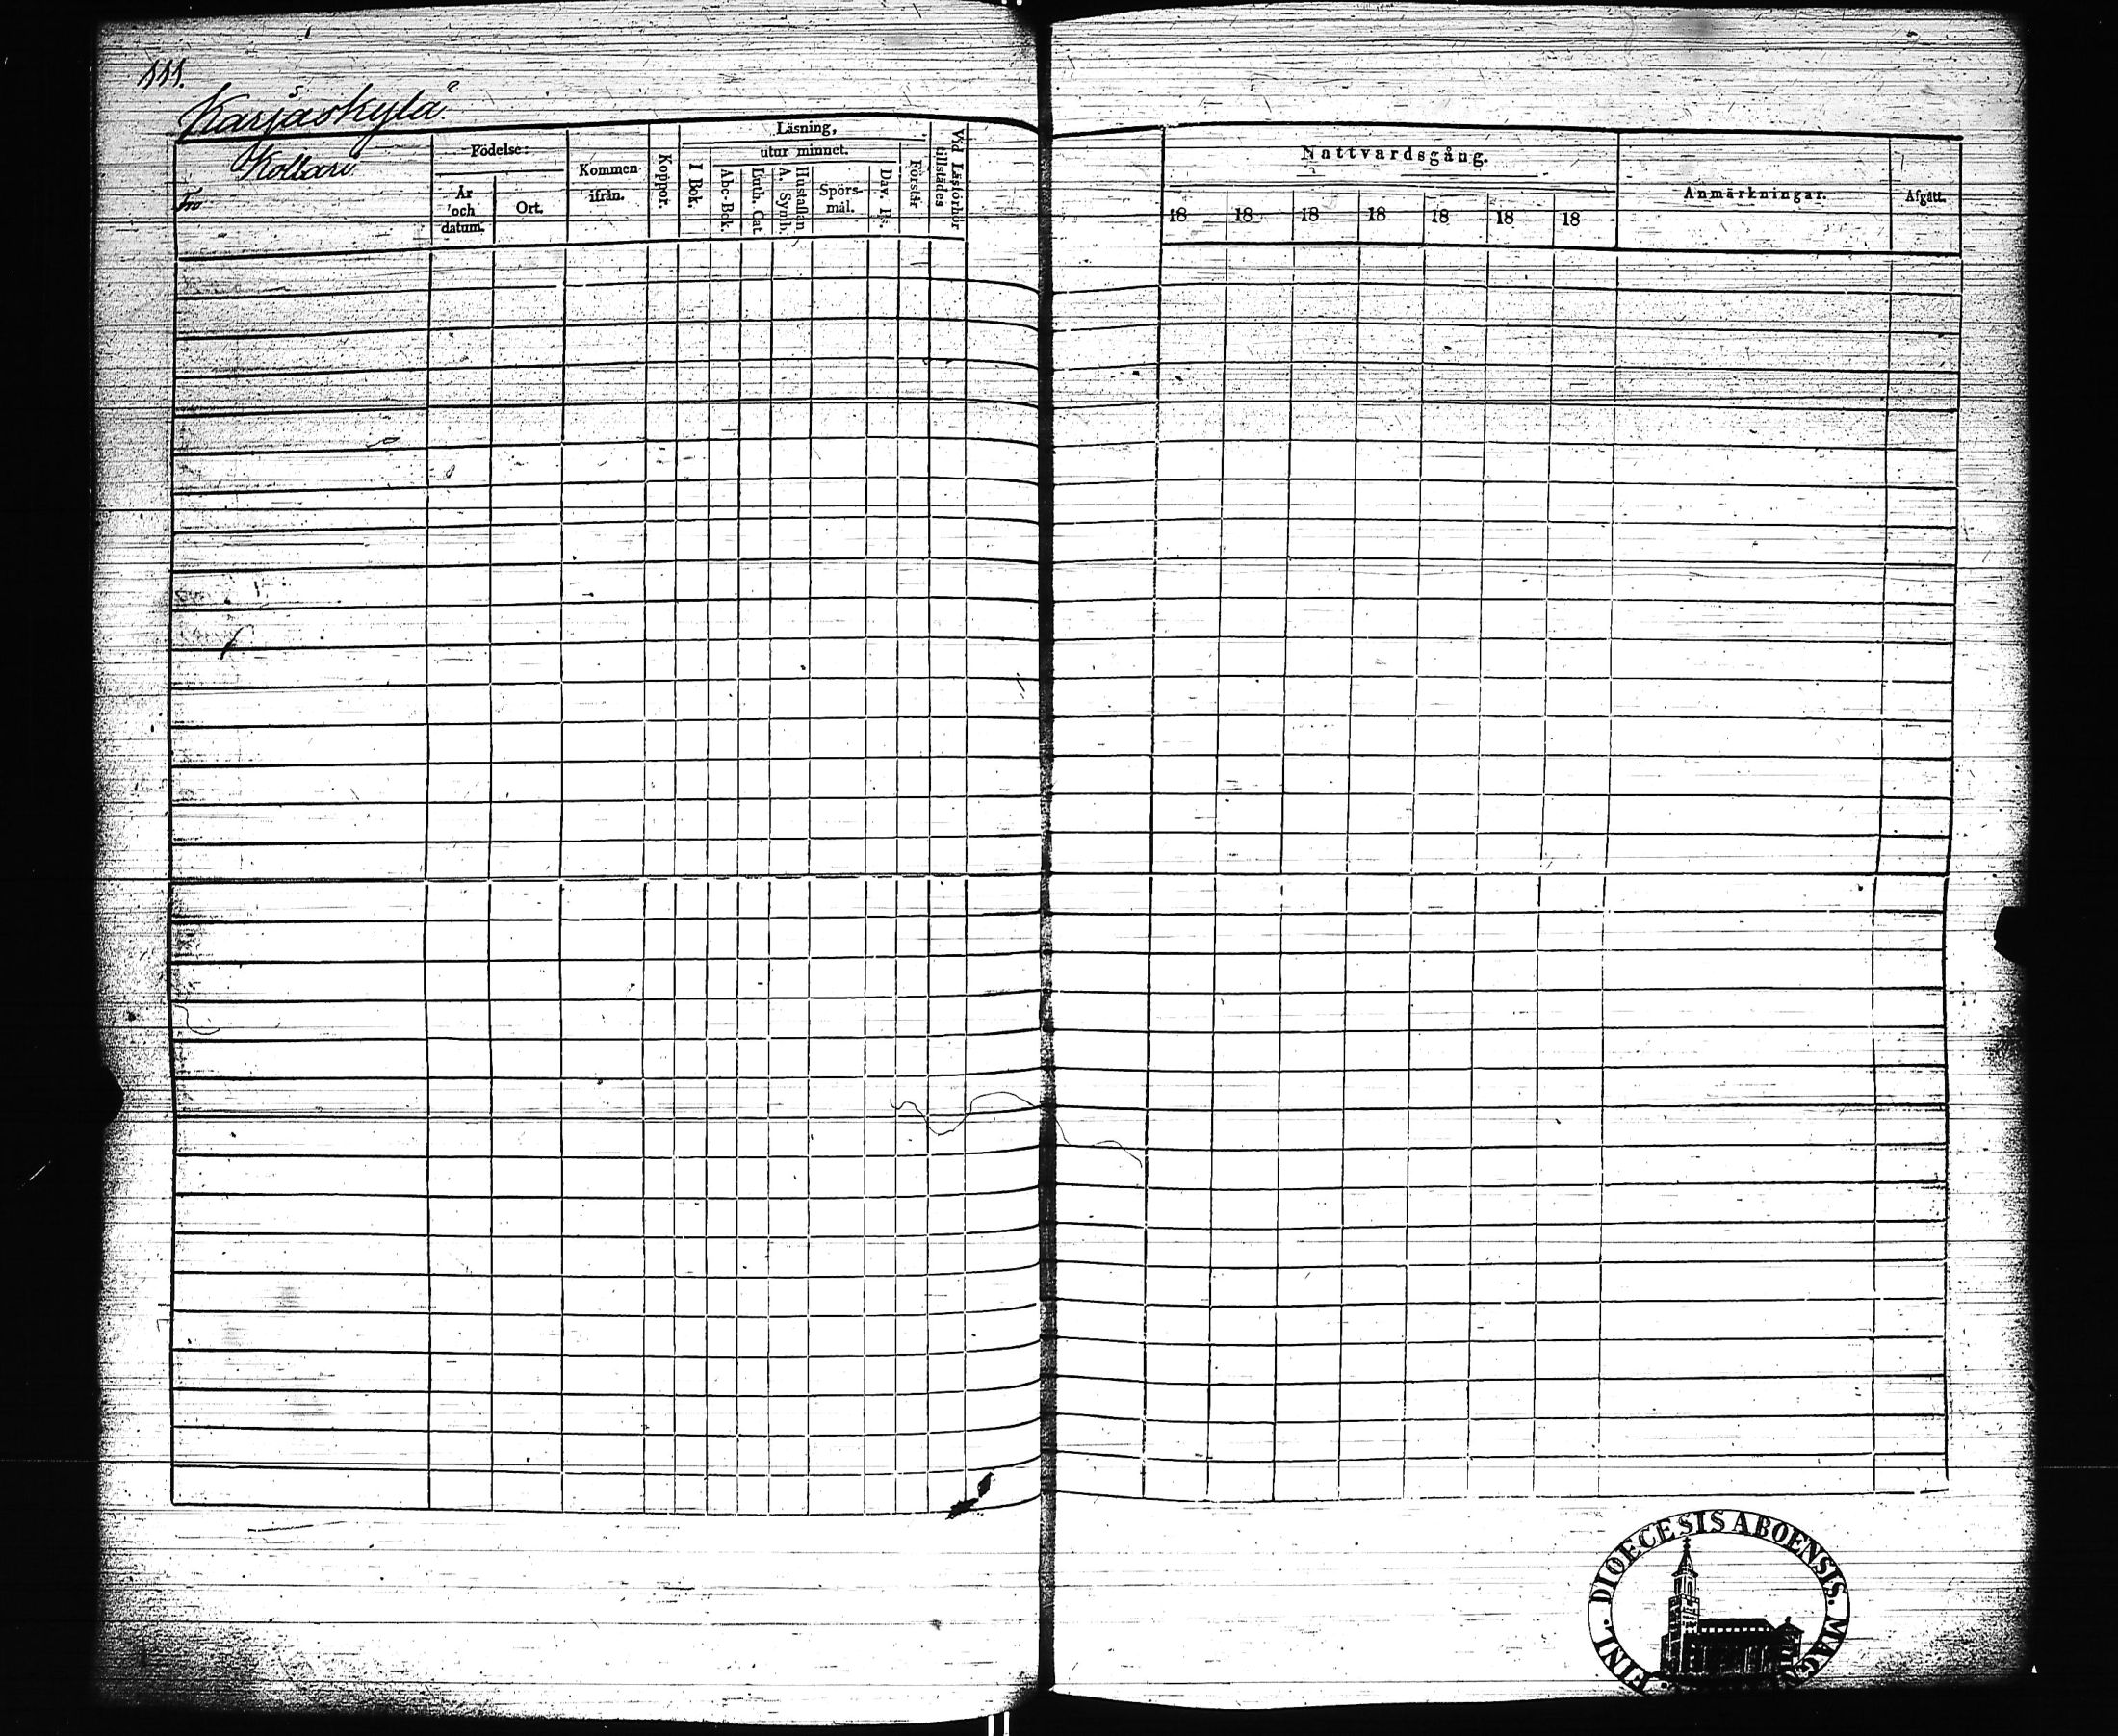 111.
Karjaskylä
Kollari
Födelse:
År och datum.
Ort.
Kommen ifrån.
Koppor.
Läsning,
I Bok.
utur minnet.
Abc-Bok.
Luth. Cat.
Hustaflan A. Symb.
Spörs-mål.
Dav. Ps.
Förstår
Vid Läsförhör tillstädes
Nattvardsgång.
18 18 18 18 18 18 18
Anmärkningar.
Afgått.
FINL. DIOECESIS ABOENSIS. MAG